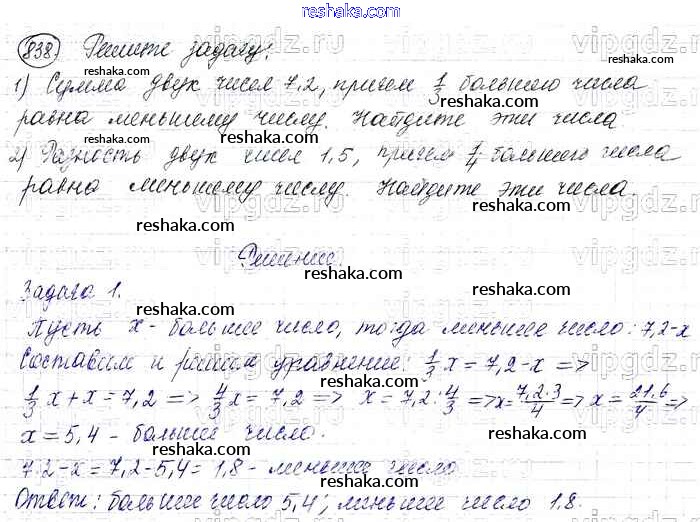 reshaka.com
838) Решите задачу:
1) Сумма двух чисел 7,2, причем 1/3 большего числа
равна меньшему числу. Найдите эти числа
2) Разность двух чисел 1,5, причем 1/4 большего числа
равна меньшему числу. Найдите эти числа.
Решение.
Задача 1.
Пусть x - большее число, тогда меньшее число: 7,2-x
Составим и решим уравнение: 1/3 x = 7,2-x =>
1/3 x + x = 7,2 => 4/3 x = 7,2 => x = 7,2 : 4/3 => x = 7,2·3/4 => x = 21,6/4 =>
x = 5,4 - большее число.
7,2-x = 7,2-5,4 = 1,8 - меньшее число
Ответ: большее число 5,4; меньшее число 1,8.
reshaka.com